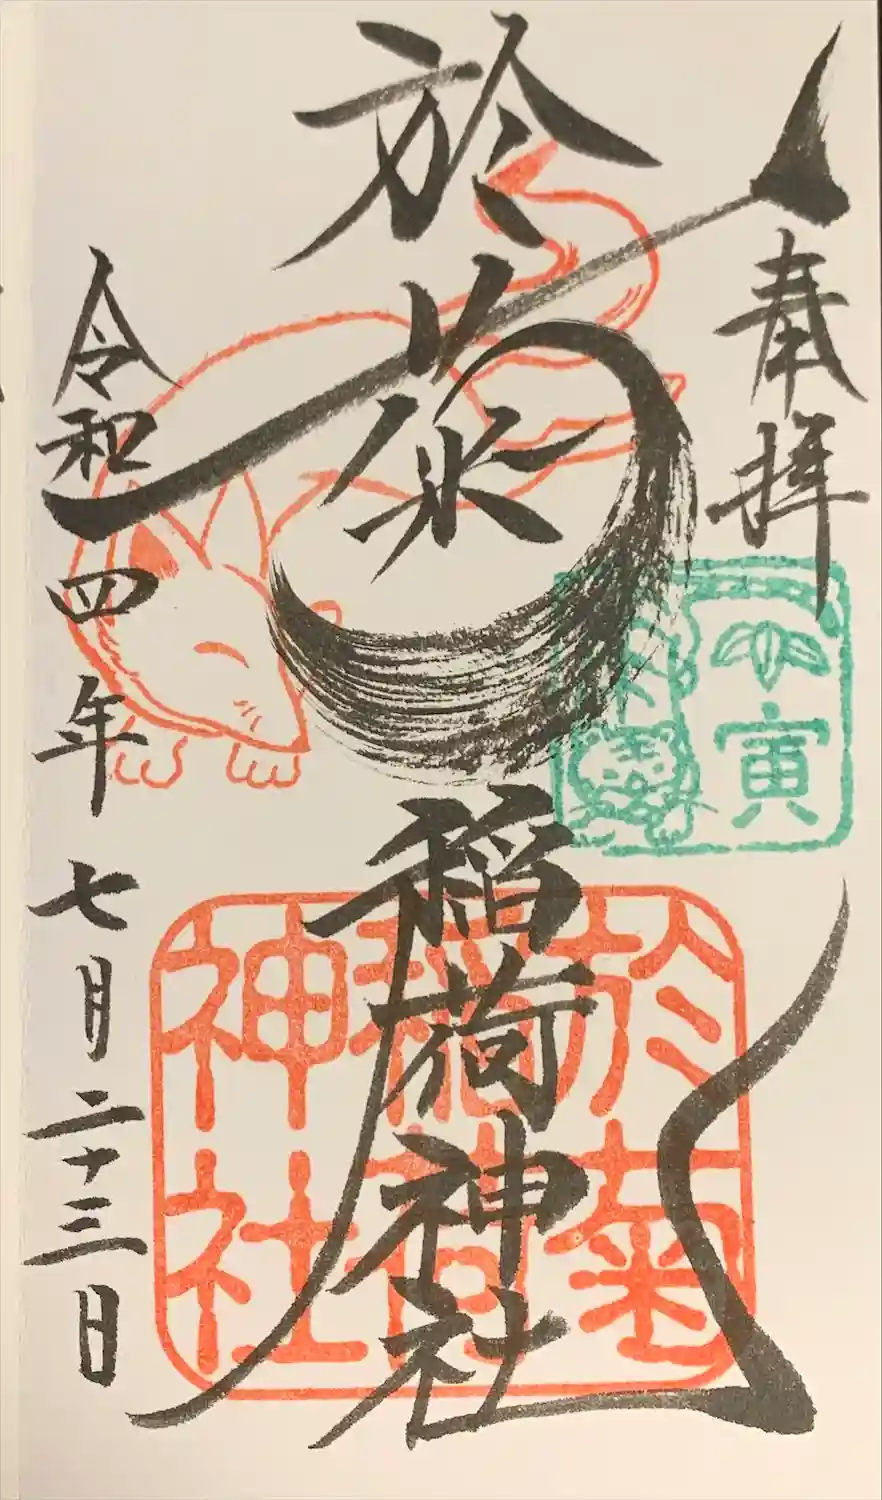 奉拝
於菊稲荷神社
令和四年七月二十三日
壬寅
於菊
稲荷
神社